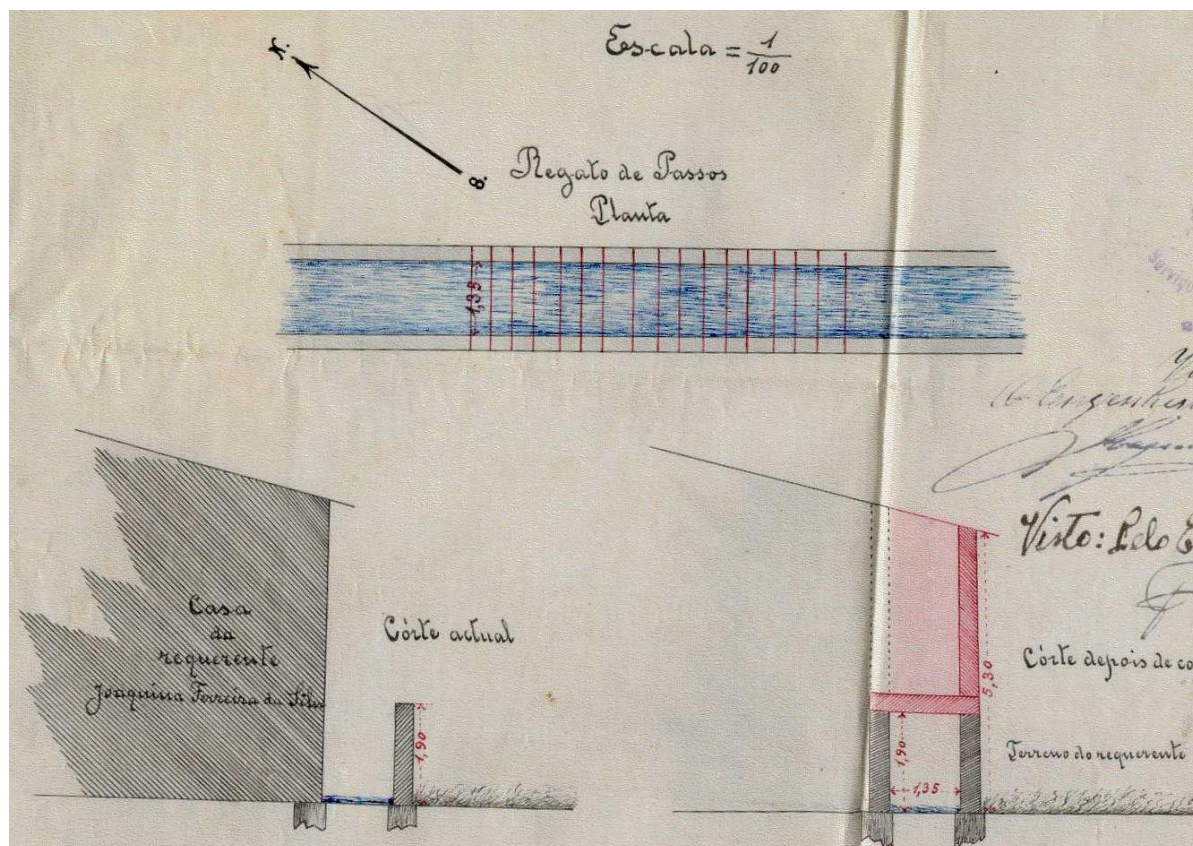 Escala = 1/100
N.
S.
Regato de Passos
Planta
1,35
Visto: Pelo E
Casa
da
requerente
Joaquina Ferreira da Silva
Córte actual
1,90
5,30
Córte depois de co
Terreno do requerente
1,90
1,35